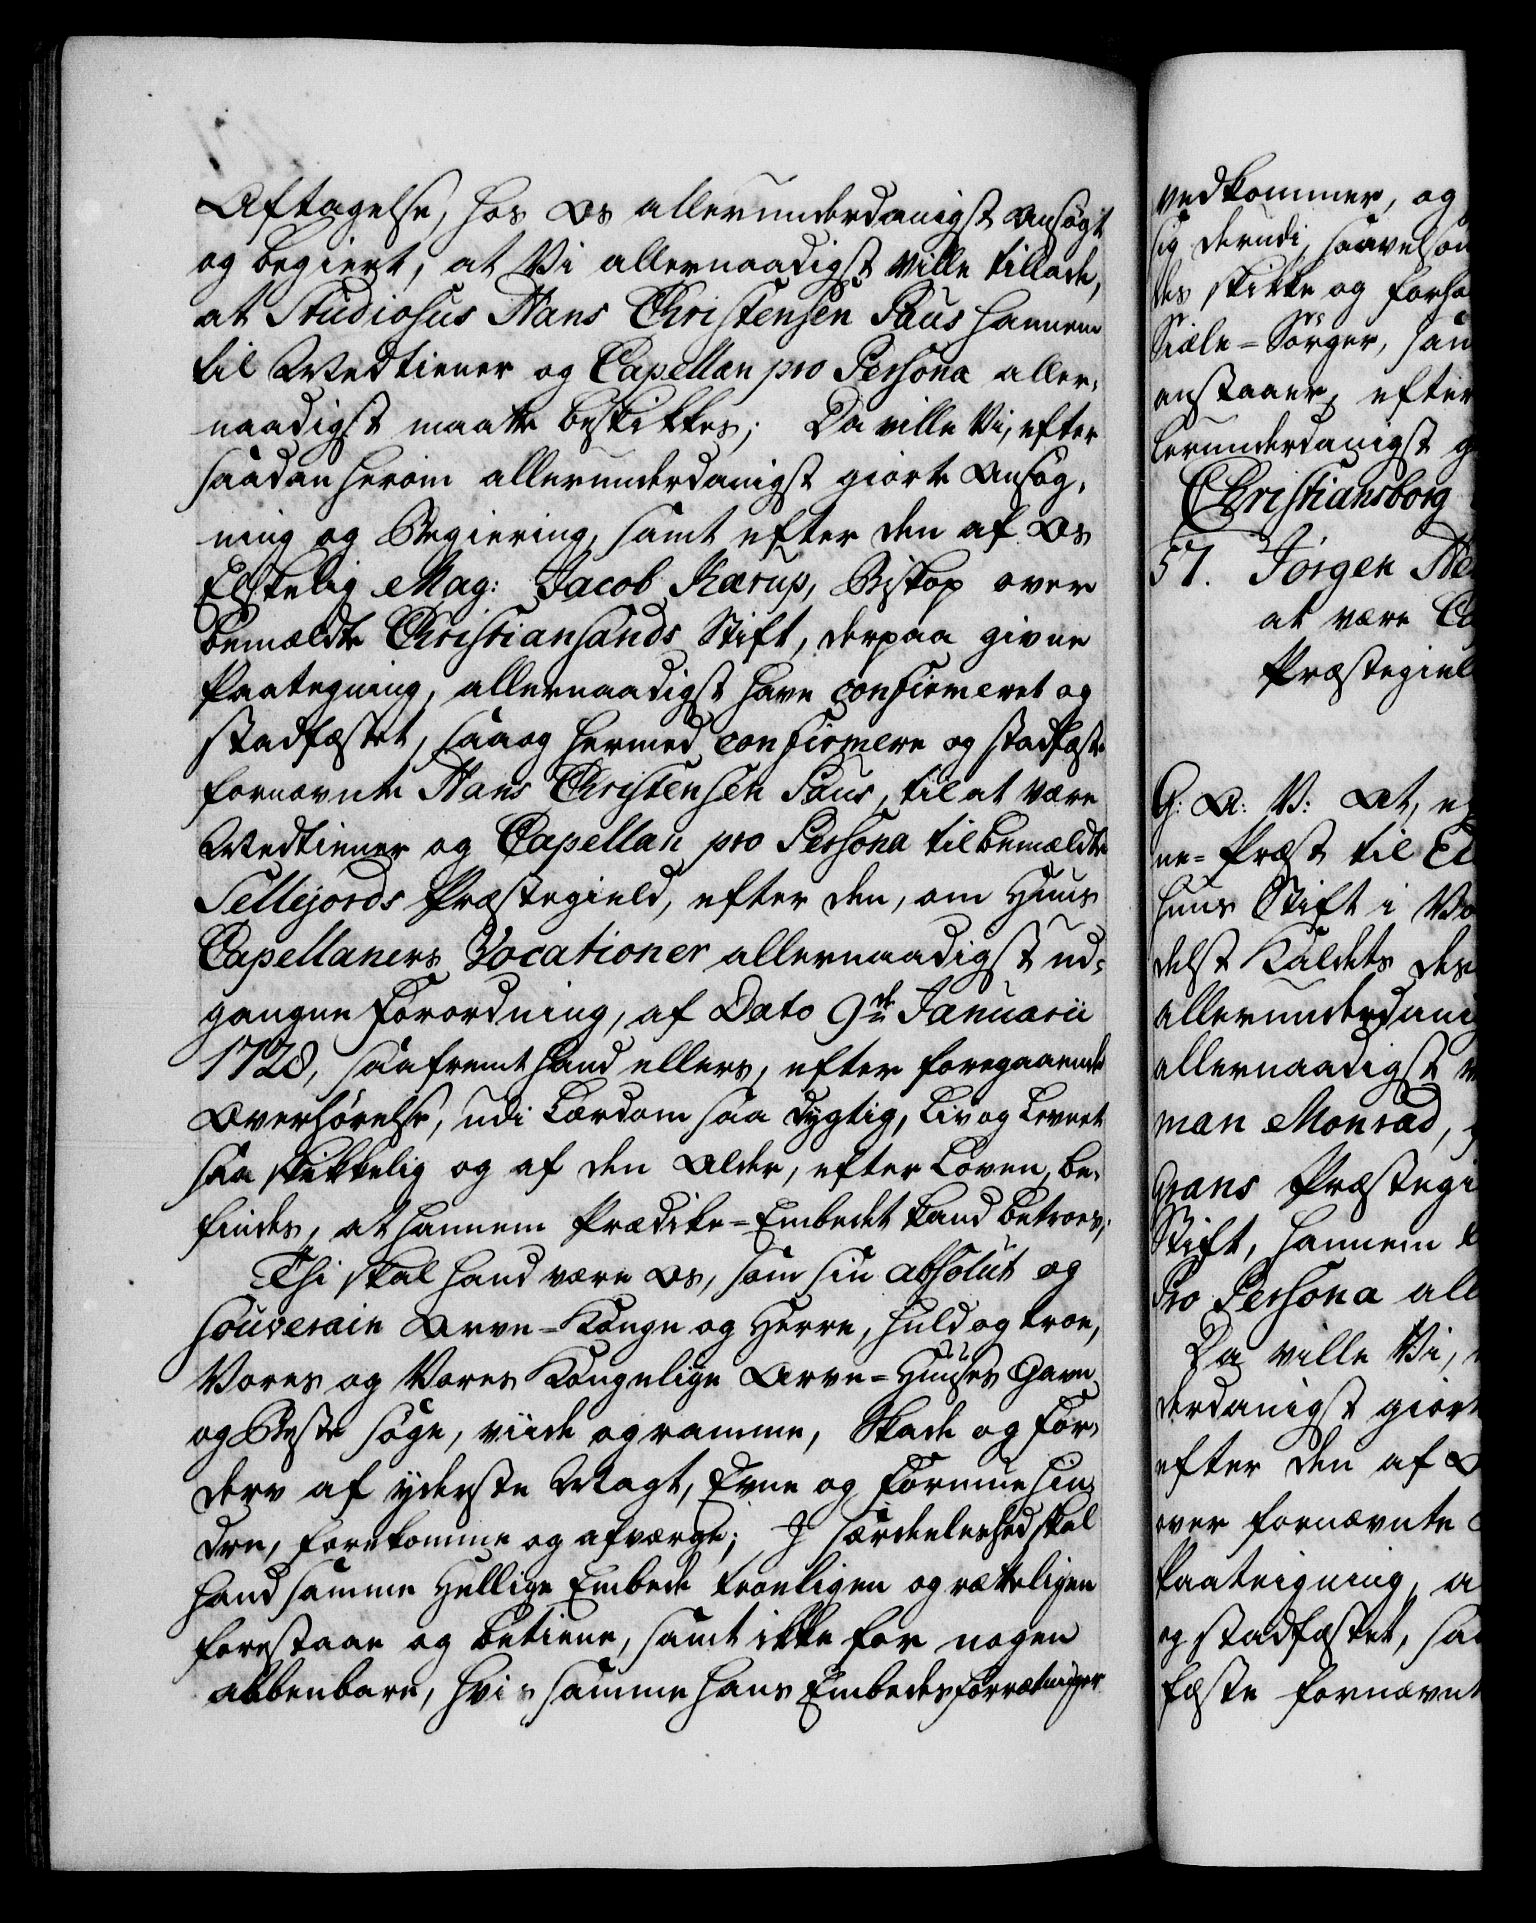 Aftagelse, hos Os allerunderdanigst Ansøgt
og begiert, at Vi allernaadigst ville tillade,
at Studiosus Hans Christensen Paus hannem
til Medtiener og Capellan pro Persona aller-
naadigst maatte beskikkes; Da ville Vi, efter
saadan herom allerunderdanigst giorte Ansøg-
ning og Begiering, samt efter den af Os
Elskelig Mag: Jacob Kærup, Biskop over
bemældte Christiansands Stift, derpaa givne
Paategning, allernaadigst have confirmeret og
stadfæstet, saa og hermed confirmere og stadfæste
fornævnte Hans Christensen Paus, til at være
Medtiener og Capellan pro Persona til bemældte
Sellejords Præstegield, efter den, om Huus
Capellaners Vocationer allernaadigst ud-
gangne Forordning, af Dato 9de Januarii
1728, saafremt hand ellers, efter foregaaende
Overhørelse, udi Lærdom saa dygtig, Liv og Levnet
saa skikkelig og af den Alder, efter Loven, be-
findes, at hannem Prædike-Embedet kand betroes;
Thi skal hand være Os, som sin absolut og
souverain Arve-Konge og Herre, huld og troe,
Vores og Vores Kongelige Arve-Huuses Gavn
og Beste søge, viide og ramme, Skade og For-
derv af yderste Magt, Evne og Formue hin-
dre, forekomme og afværge; I særdeeleshed skal
hand samme Hellige Embede troeligen og rætteligen
forestaae og betiene, samt ikke for nogen
aabenbare, hvis samme hans Embedes Forrætninger
vedkommer, og
sig derudi, saavelsom
des skikke og forho
Siæle-Sørger, saa
anstaaer, efter
lerunderdanigst g
Christiansborg
57. Jørgen He
at være Ca
Præstegiel
G: A: V: At, e
ne-Præst til Ei
huus Stift i Vo
delst Kaldets des
allerunderdani
allernaadigst v
man Monrad,
Grans Præstegi
Stift, hannem
Pro Persona all
Da ville Vi,
derdanigst giort
efter den af O
over fornævnte
Paateigning, a
og stadfæstet, saa
fæste fornævnt